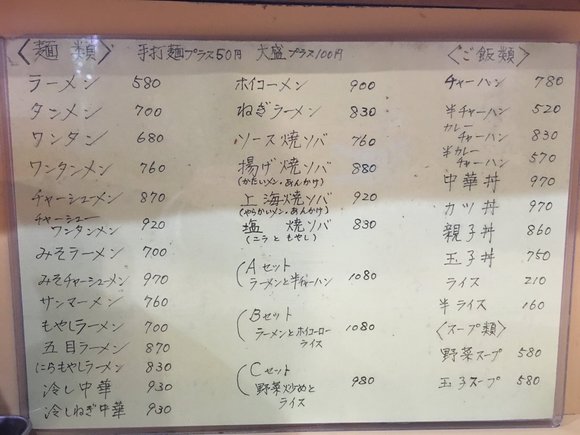 〈麺類〉 手打麺プラス50円 大盛プラス100円
ラーメン 580
タンメン 700
ワンタン 680
ワンタンメン 760
チャーシューメン 870
チャーシュー
ワンタンメン 920
みそラーメン 700
みそチャーシューメン 970
サンマーメン 760
もやしラーメン 700
五目ラーメン 870
にらもやしラーメン 830
冷し中華 930
冷しねぎ中華 930
ホイコーメン 900
ねぎラーメン 830
ソース焼ソバ 760
揚げ焼ソバ 880
(かたいメン・あんかけ)
上海焼ソバ 920
(やらかいメン・あんかけ)
塩焼ソバ 830
(ニラともやし)
Aセット
ラーメンと半チャーハン 1080
Bセット
ラーメンとホイコーロー 1080
ライス
Cセット
野菜炒めと 980
ライス
〈ご飯類〉
チャーハン 780
半チャーハン 520
カレー
チャーハン 830
半カレー
チャーハン 570
中華丼 970
カツ丼 970
親子丼 860
玉子丼 750
ライス 210
半ライス 160
〈スープ類〉
野菜スープ 580
玉子スープ 580